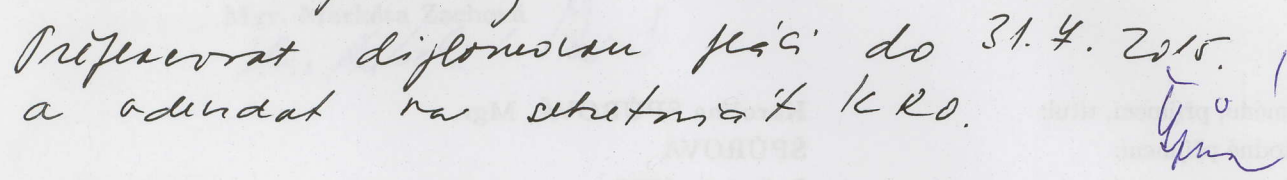 Přepracovat diplomovou práci do 31.7.2015.
a odevzdat na sekretariát KRO.